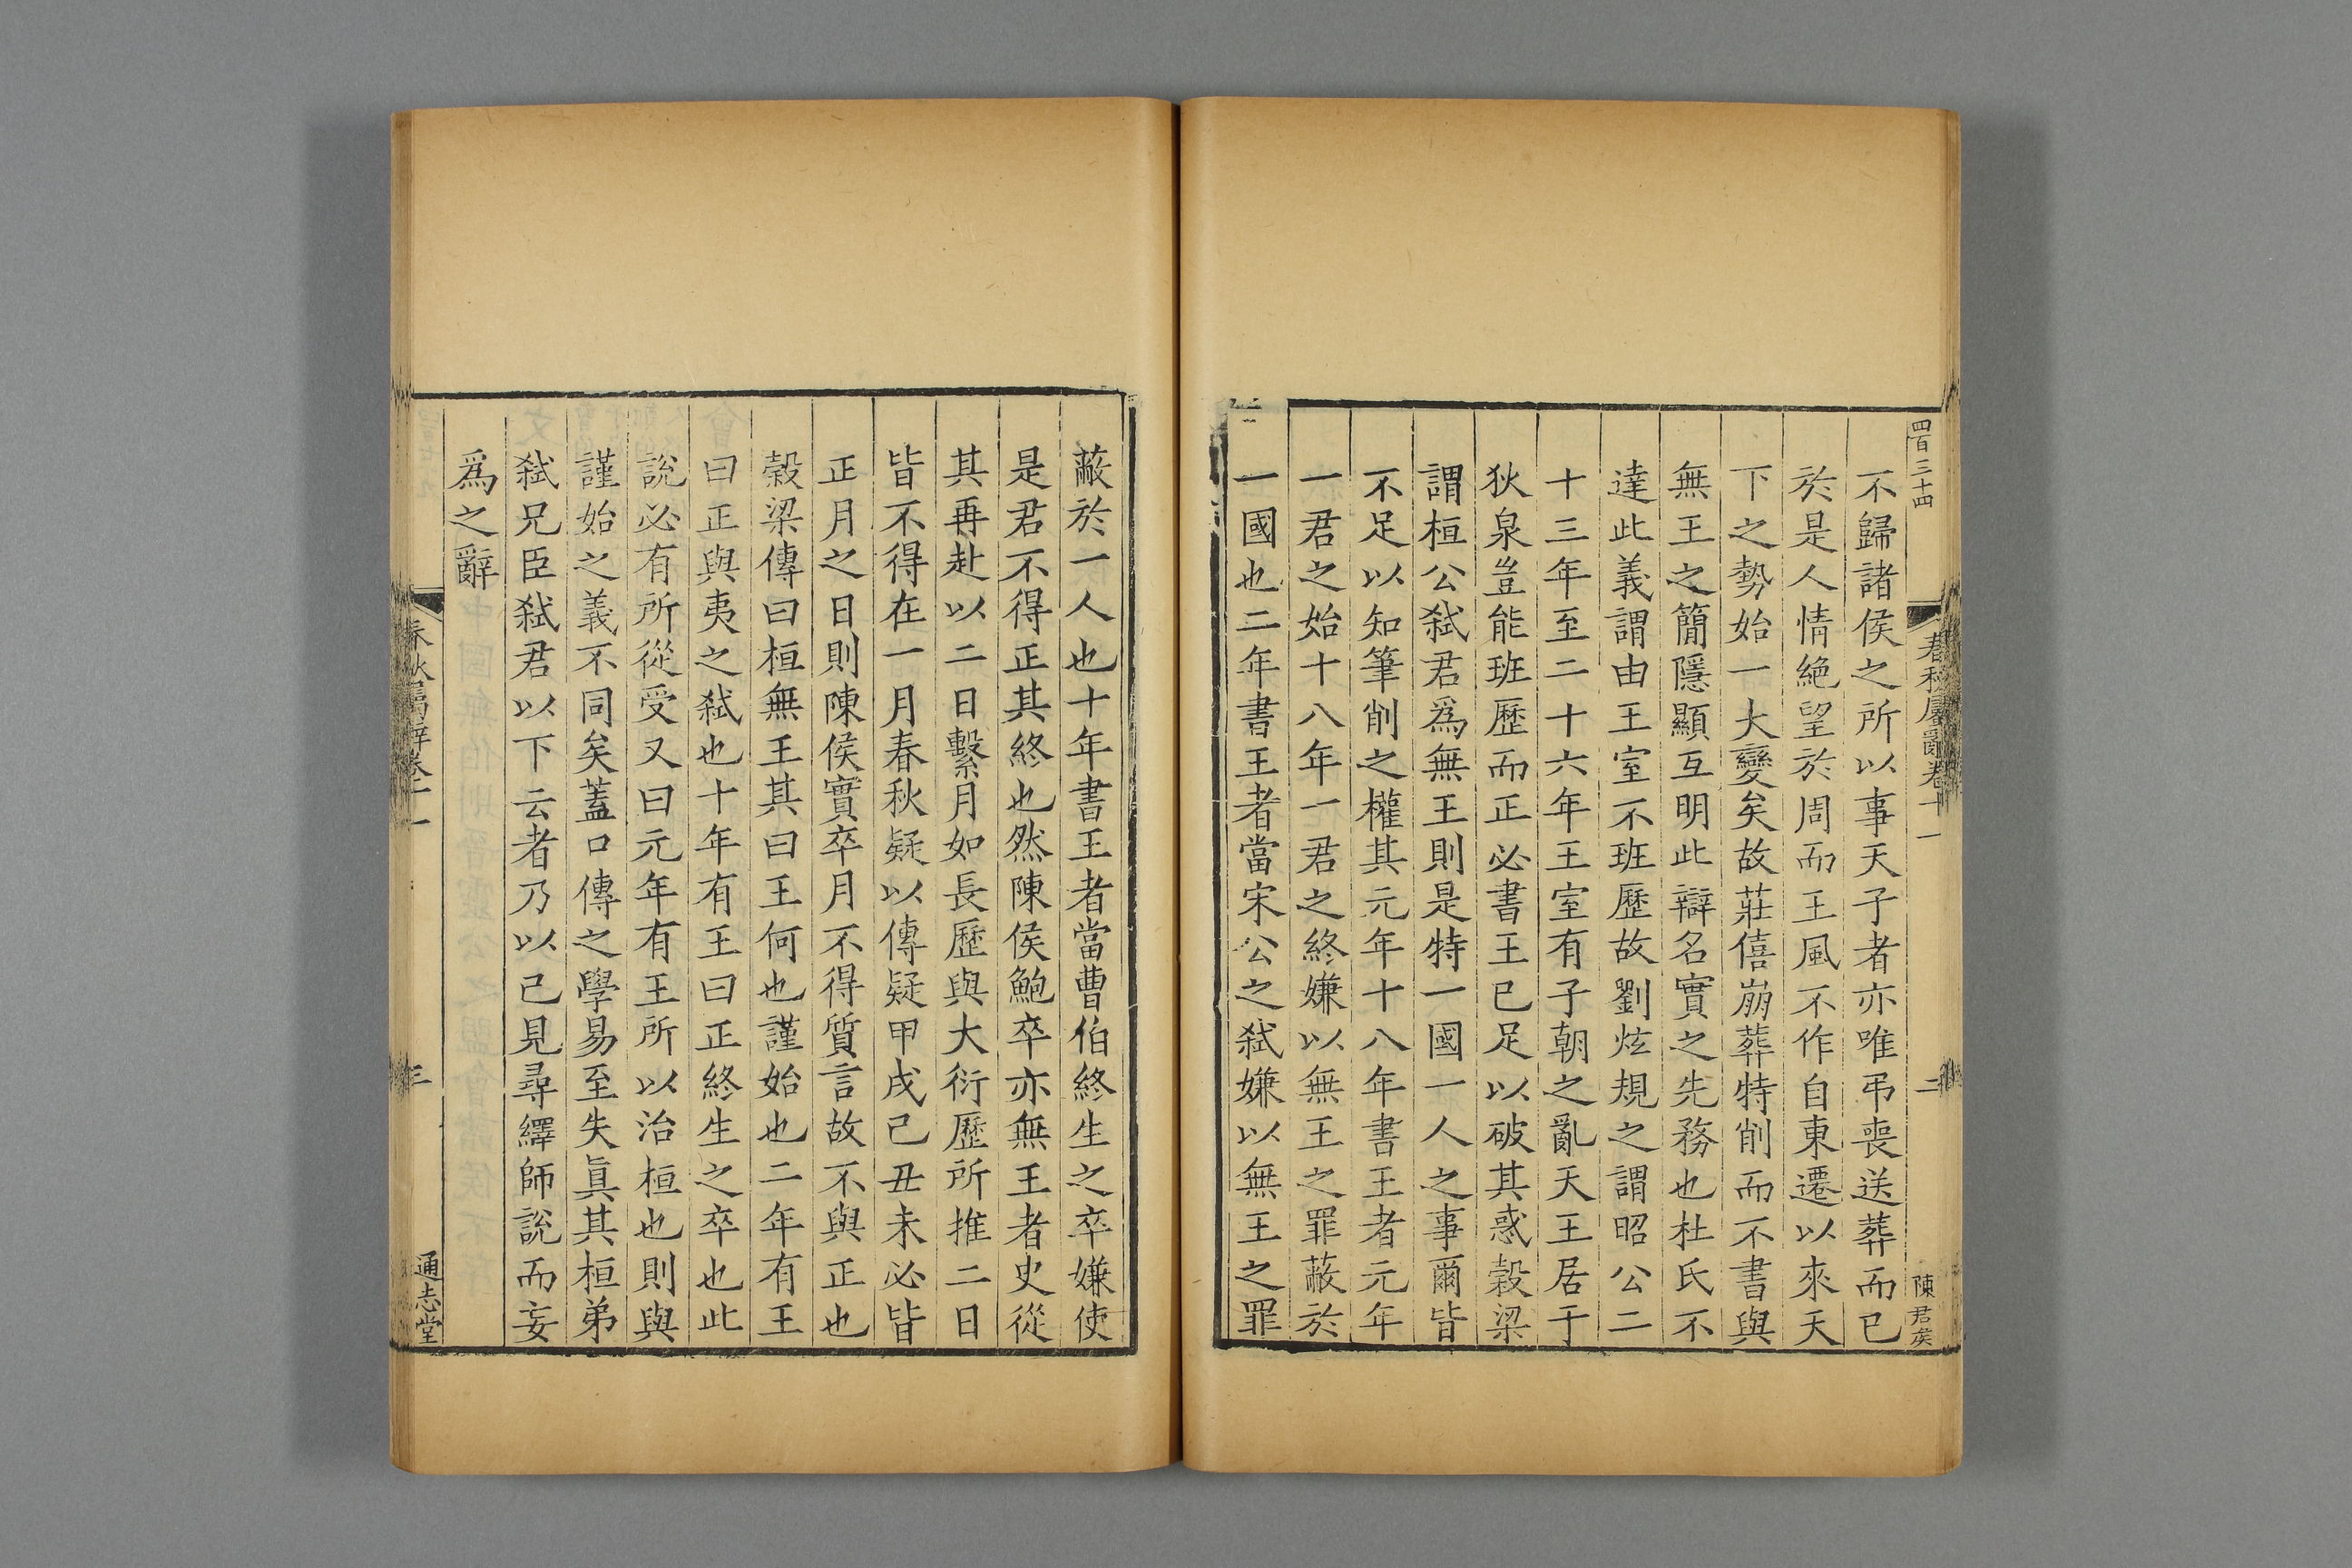 四百三十四
春秋屬辭卷十一
二
陳君矦
不歸諸侯之所以事天子者亦唯弔喪送葬而已
於是人情絶望於周而王風不作自東遷以來天
下之勢始一大變矣故莊僖崩葬特削而不書與
無王之簡隱顯互明此辯名實之先務也杜氏不
達此義謂由王室不班歷故劉炫規之謂昭公二
十三年至二十六年王室有子朝之亂天王居于
狄泉豈能班歷而正必書王已足以破其惑穀梁
謂桓公弒君爲無王則是特一國一人之事爾皆
不足以知筆削之權其元年十八年書王者元年
一君之始十八年一君之終嫌以無王之罪蔽於
一國也二年書王者當宋公之弒嫌以無王之罪
蔽於一人也十年書王者當曹伯終生之卒嫌使
是君不得正其終也然陳侯鮑卒亦無王者史從
其再赴以二日繫月如長歷與大衍歷所推二日
皆不得在一月春秋疑以傳疑甲戌己丑未必皆
正月之日則陳侯實卒月不得質言故不與正也
穀梁傳曰桓無王其曰王何也謹始也二年有王
曰正與夷之弒也十年有王曰正終生之卒也此
說必有所從受又曰元年有王所以治桓也則與
謹始之義不同矣蓋口傳之學易至失眞其桓弟
弒兄臣弒君以下云者乃以己見尋繹師說而妄
爲之辭
春秋屬辭卷十一
三
通志堂